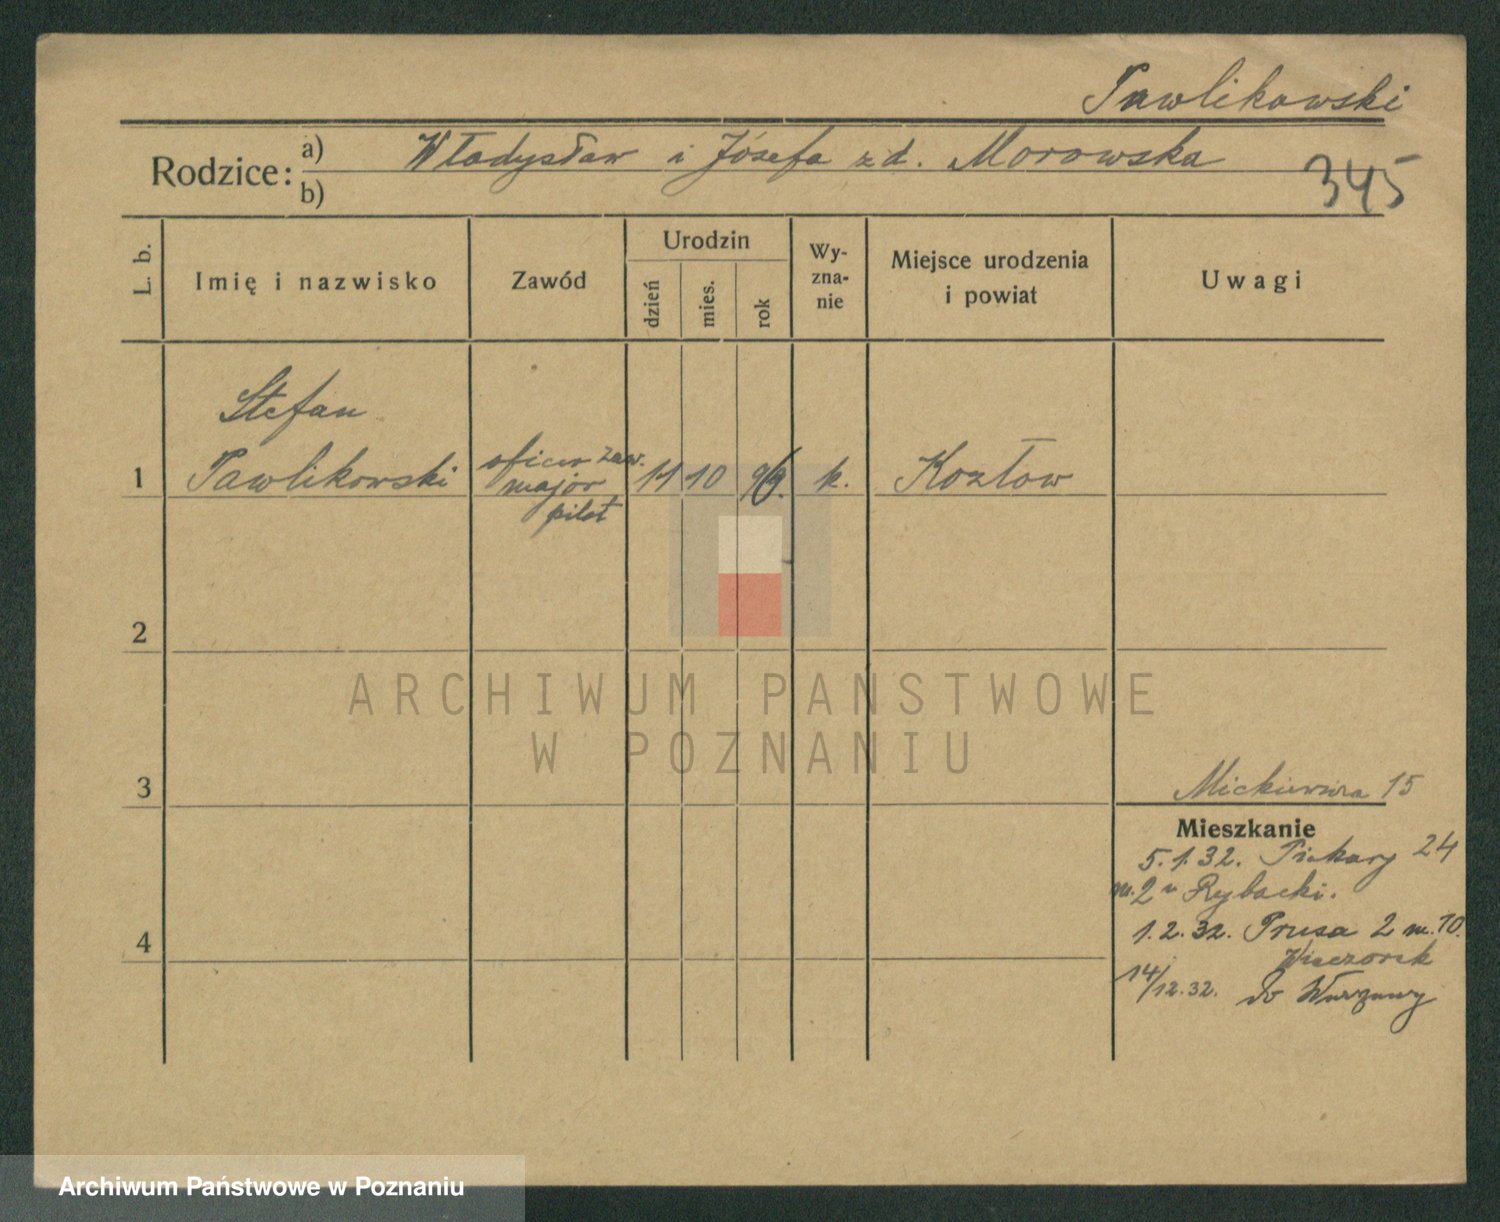 Pawlikowski
Rodzice: a) Władysław i Józefa z d. Morowska
b)
345
L. b.
Imię i nazwisko
Zawód
Urodzin
dzień
mies.
rok
Wy-
zna-
nie
Miejsce urodzenia
i powiat
Uwagi
Stefan
1 Pawlikowski
oficer zaw.
major
pilot
11 10
k.
Kozłow
2
3
4
ARCHIWUM PAŃSTWOWE
W POZNANIU
Mickiewicza 15
Mieszkanie
5.1.32. Piekary 24
m.2 u Rybacki.
1.2.32. Prusa 2 m.10.
Wieczorek
14/12.32. do Warszawy
Archiwum Państwowe w Poznaniu